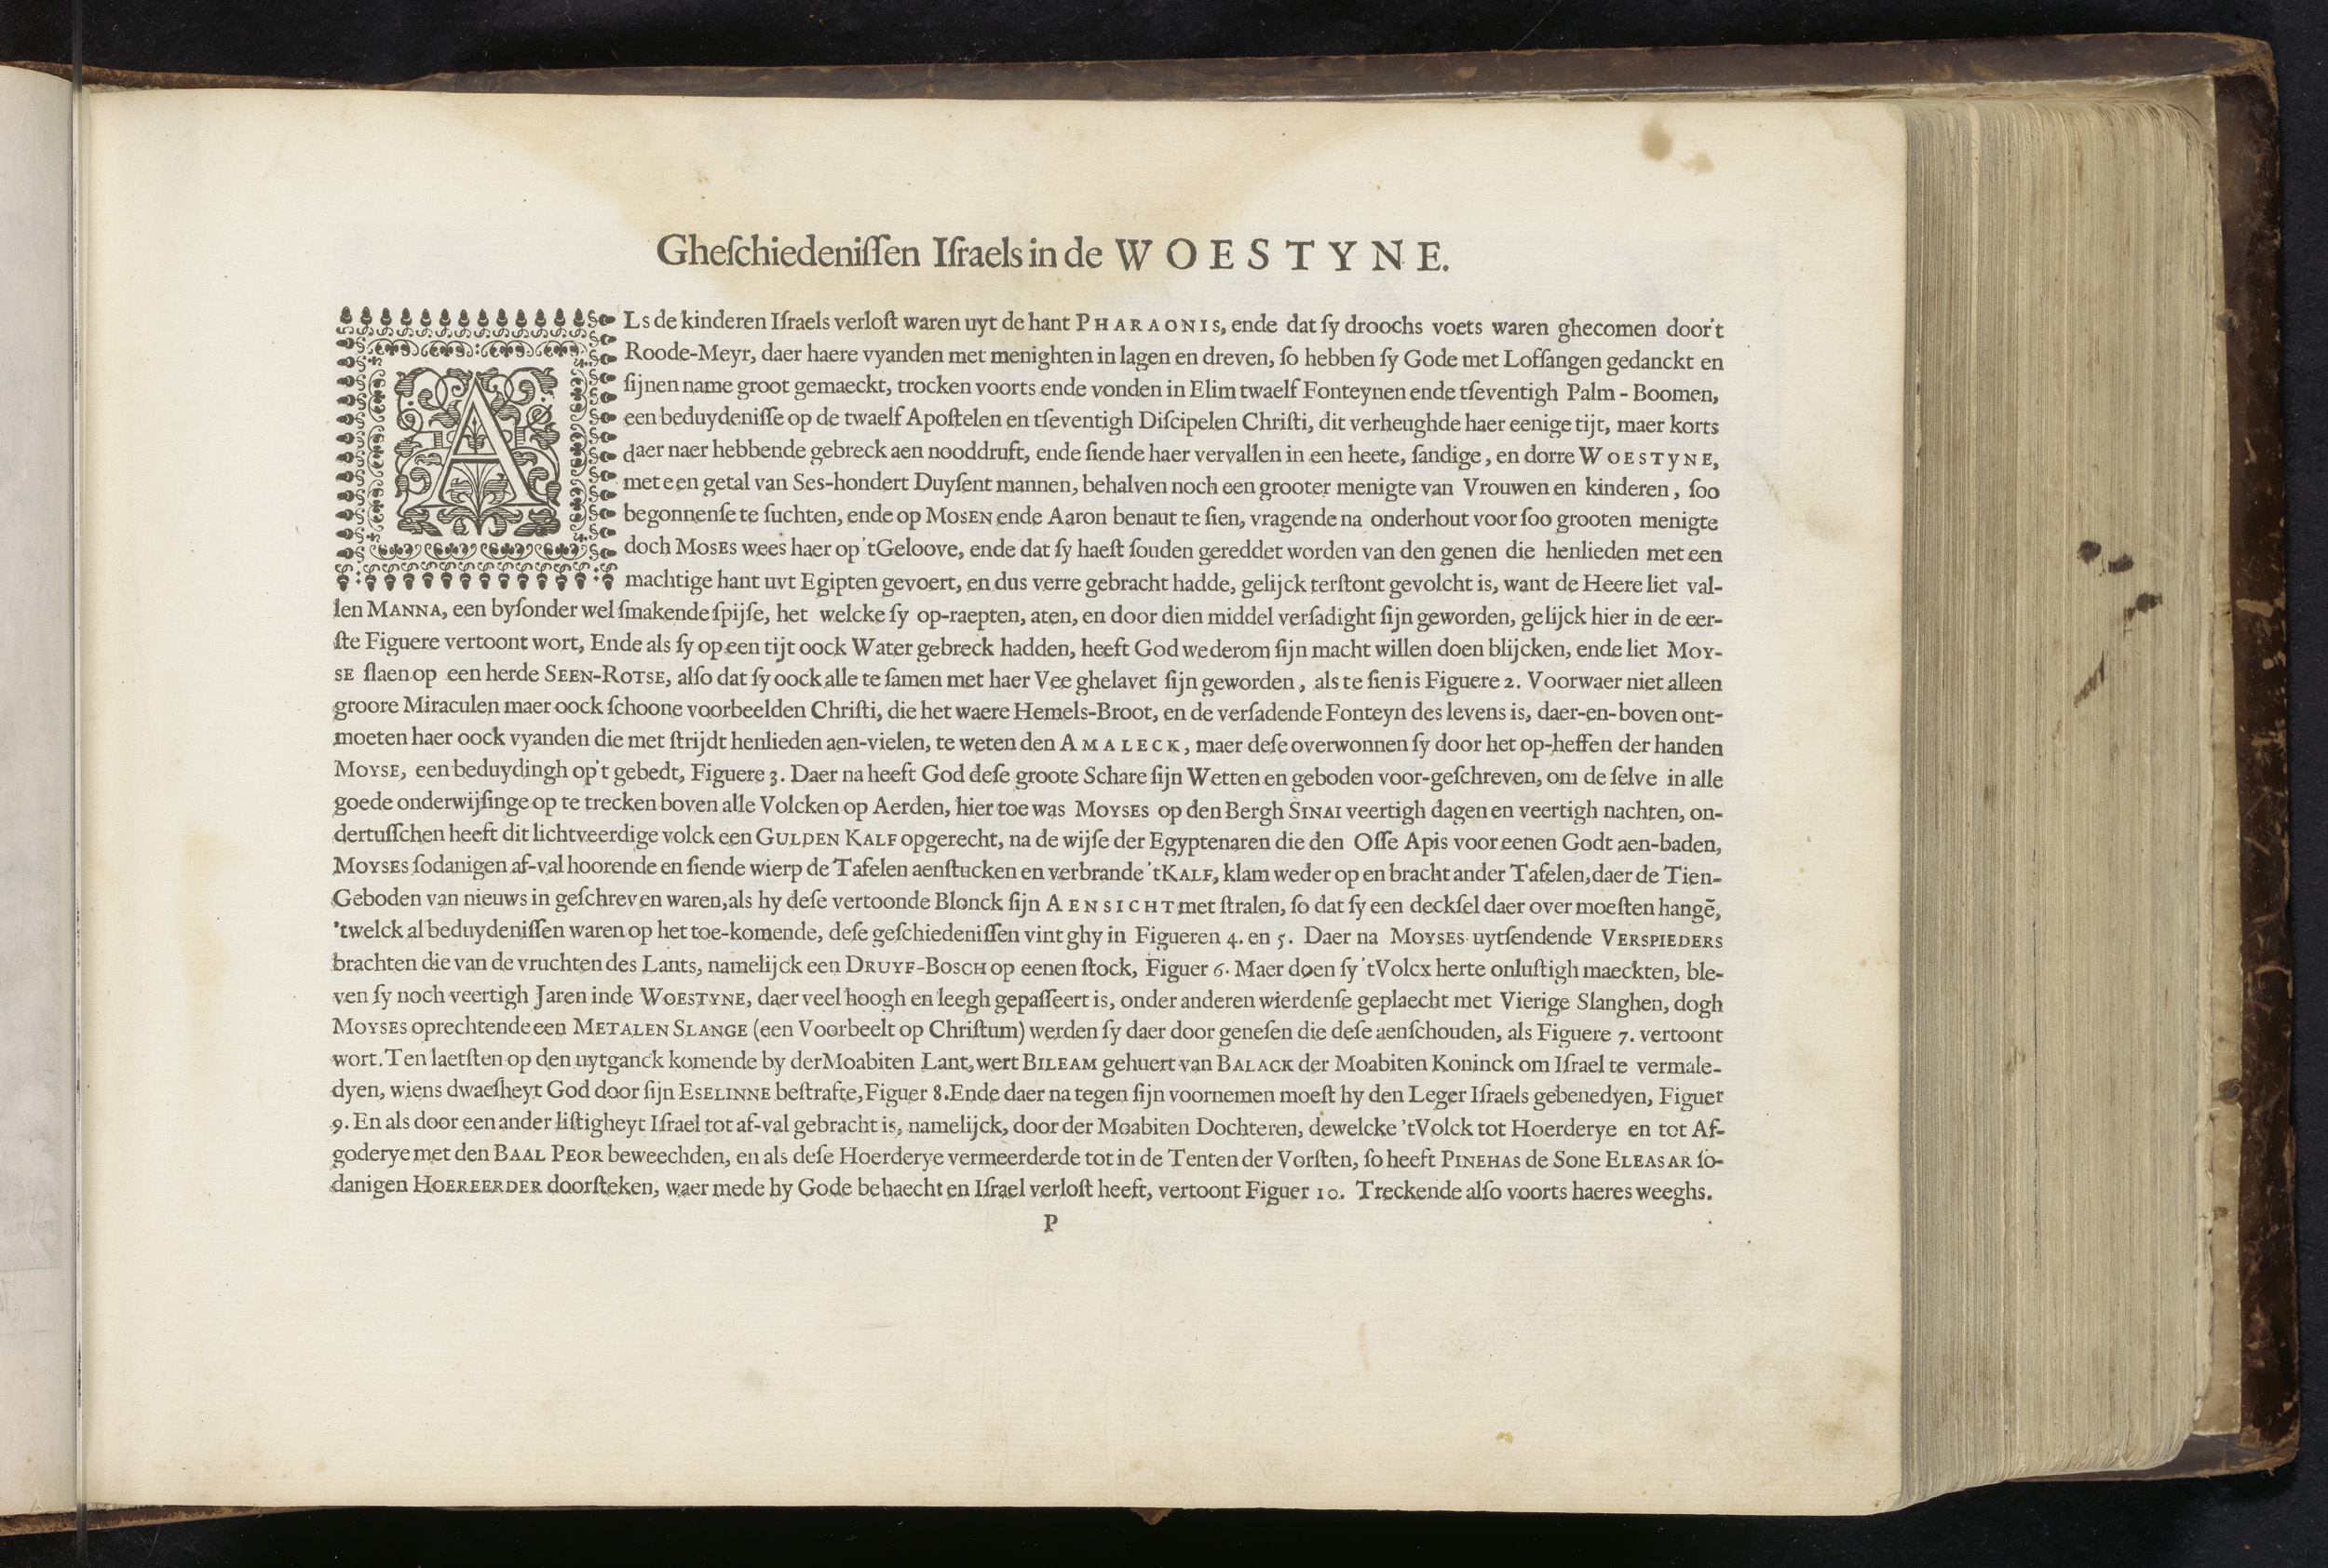 Gheſchiedeniſſen Iſraels in de WOESTYNE.
ALs de kinderen Iſraels verloſt waren uyt de hant PHARAONIS, ende dat ſy droochs voets waren ghecomen door't
Roode-Meyr, daer haere vyanden met menighten in lagen en dreven, ſo hebben ſy Gode met Lofſangen gedanckt en
ſijnen name groot gemaeckt, trocken voorts ende vonden in Elim twaelf Fonteynen ende tſeventigh Palm-Boomen,
een beduydeniſſe op de twaelf Apoſtelen en tſeventigh Diſcipelen Chriſti, dit verheughde haer eenige tijt, maer korts
daer naer hebbende gebreck aen nooddruft, ende ſiende haer vervallen in een heete, ſandige, en dorre WOESTyNE,
met een getal van Ses-hondert Duyſent mannen, behalven noch een grooter menigte van Vrouwen en kinderen, ſoo
begonnenſe te ſuchten, ende op MOSEN ende Aaron benaut te ſien, vragende na onderhout voor ſoo grooten menigte
doch MOSES wees haer op 'tGeloove, ende dat ſy haeſt ſouden gereddet worden van den genen die henlieden met een
machtige hant uvt Egipten gevoert, en dus verre gebracht hadde, gelijck terſtont gevolcht is, want de Heere liet val-
len MANNA, een byſonder wel ſmakende ſpijſe, het welcke ſy op-raepten, aten, en door dien middel verſadight ſijn geworden, gelijck hier in de eer-
ſte Figuere vertoont wort, Ende als ſy op een tijt oock Water gebreck hadden, heeft God wederom ſijn macht willen doen blijcken, ende liet MOY-
SE ſlaen op een herde SEEN-ROTSE, alſo dat ſy oock alle te ſamen met haer Vee ghelavet ſijn geworden, als te ſien is Figuere 2. Voorwaer niet alleen
groore Miraculen maer oock ſchoone voorbeelden Chriſti, die het waere Hemels-Broot, en de verſadende Fonteyn des levens is, daer-en-boven ont-
moeten haer oock vyanden die met ſtrijdt henlieden aen-vielen, te weten den AMALECK, maer deſe overwonnen ſy door het op-heffen der handen
MOYSE, een beduydingh op't gebedt, Figuere 3. Daer na heeft God deſe groote Schare ſijn Wetten en geboden voor-geſchreven, om de ſelve in alle
goede onderwijſinge op te trecken boven alle Volcken op Aerden, hier toe was MOYSES op den Bergh SINAI veertigh dagen en veertigh nachten, on-
dertuſſchen heeft dit lichtveerdige volck een GULDEN KALF opgerecht, na de wijſe der Egyptenaren die den Oſſe Apis voor eenen Godt aen-baden,
MOYSES ſodanigen af-val hoorende en ſiende wierp de Tafelen aenſtucken en verbrande 'tKALF, klam weder op en bracht ander Tafelen, daer de Tien-
Geboden van nieuws in geſchreven waren, als hy deſe vertoonde Blonck ſijn AENSICHT met ſtralen, ſo dat ſy een deckſel daer over moeſten hangē,
'twelck al beduydeniſſen waren op het toe-komende, deſe geſchiedeniſſen vint ghy in Figueren 4. en 5. Daer na MOYSES uytſendende VERSPIEDERS
brachten die van de vruchten des Lants, namelijck een DRUYF-BOSCH op eenen ſtock, Figuer 6. Maer doen ſy 'tVolcx herte onluſtigh maeckten, ble-
ven ſy noch veertigh Jaren inde WOESTYNE, daer veel hoogh en leegh gepaſſeert is, onder anderen wierdenſe geplaecht met Vierige Slanghen, dogh
MOYSES oprechtende een METALEN SLANGE (een Voorbeelt op Chriſtum) werden ſy daer door geneſen die deſe aenſchouden, als Figuere 7. vertoont
wort. Ten laetſten op den uytganck komende by der Moabiten Lant, wert BILEAM gehuert van BALACK der Moabiten Koninck om Iſrael te vermale-
dyen, wiens dwaeſheyt God door ſijn ESELINNE beſtrafte, Figuer 8. Ende daer na tegen ſijn voornemen moeſt hy den Leger Iſraels gebenedyen, Figuer
9. En als door een ander liſtigheyt Iſrael tot af-val gebracht is, namelijck, door der Moabiten Dochteren, dewelcke 'tVolck tot Hoerderye en tot Af-
goderye met den BAAL PEOR beweechden, en als deſe Hoerderye vermeerderde tot in de Tenten der Vorſten, ſo heeft PINEHAS de Sone ELEASAR ſo-
danigen HOEREERDER doorſteken, waer mede hy Gode behaecht en Iſrael verloſt heeft, vertoont Figuer 10. Treckende alſo voorts haeres weeghs.
P